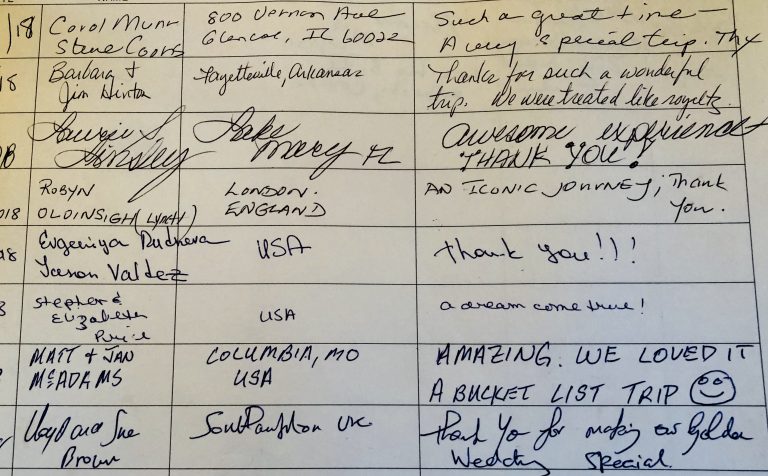 18 Carol Munn 800 Vernon Ave Such a great time -
Steve Coons Glencoe, IL 60022 A very special trip. Thx
18 Barbara + Fayetteville, Arkansas Thanks for such a wonderful
Jim Hinton trip. We were treated like royalty.
Laurie S. Lake awesome experience
Ginsley Mary FL THANK YOU!
ROBYN LONDON. AN ICONIC JOURNEY; Thank
018 OLDINSIGH (LYNCH) ENGLAND You.
18 Evgeniya USA thank you!!!
Jason Valdez
Stephen & USA a dream come true!
Elizabeth
Price
MATT + JAN COLUMBIA, MO AMAZING. WE LOVED IT
McADAMS USA A BUCKET LIST TRIP
Lloyd and Sue Southampton UK Thank You for making our Golden
Brown Wedding Special.